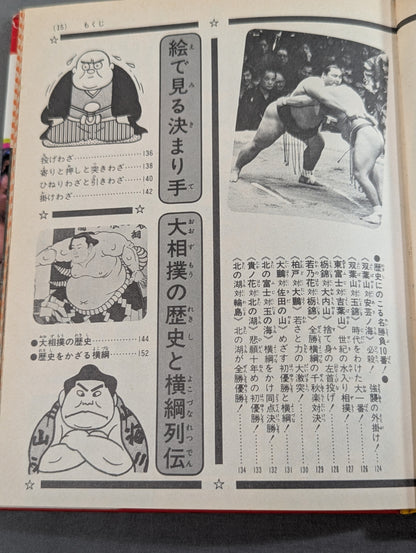 (15) もくじ
●歴史にのこる名勝負10番！
〈双葉山対安芸ノ海〉必殺！強襲の外掛け！ 124
〈双葉山対玉錦〉時代をわけた大一番！ 126
〈東富士対吉葉山〉世紀の水入り相撲！ 127
〈栃錦対大内山〉捨て身の左首投げ！ 128
〈若乃花対栃錦〉全勝横綱の千秋楽対決！ 129
〈柏戸対大鵬〉若さと力の大激突！ 130
〈大鵬対佐田の山〉めざす初優勝と横綱！ 131
〈北の富士対玉の海〉横綱をかけ同点決勝！ 132
〈貴ノ花対北の湖〉悲願十年めの初優勝！ 133
〈北の湖対輪島〉北の湖が全勝優勝！ 134
絵で見る決まり手
投げわざ……136
寄りと押しと突きわざ……138
ひねりわざと引きわざ……140
掛けわざ……142
大相撲の歴史と横綱列伝
●大相撲の歴史……144
●歴史をかざる横綱……152